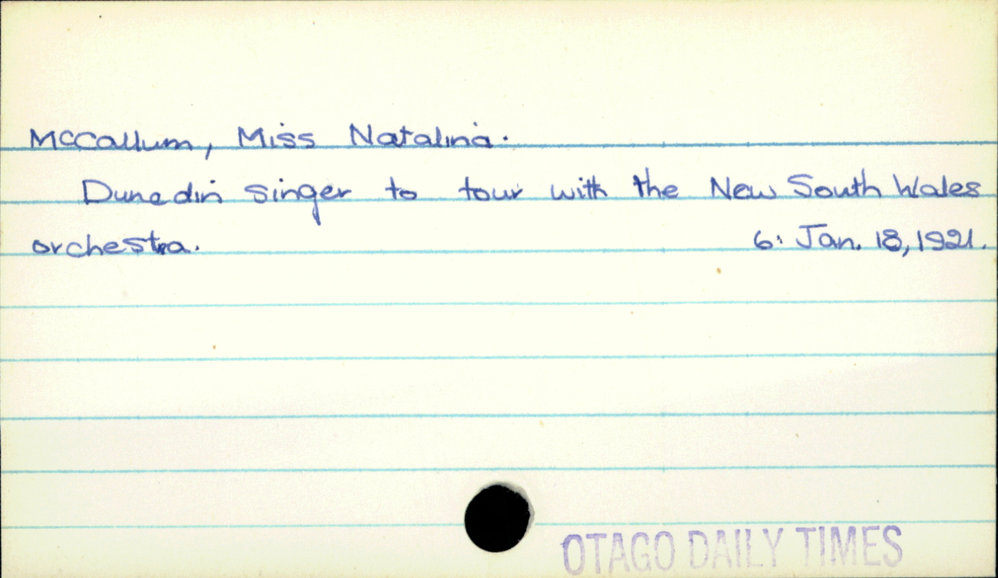 McCallum, Miss Natalina.
Dunedin singer to tour with the New South Wales
orchestra. 6: Jan. 18, 1921.
OTAGO DAILY TIMES